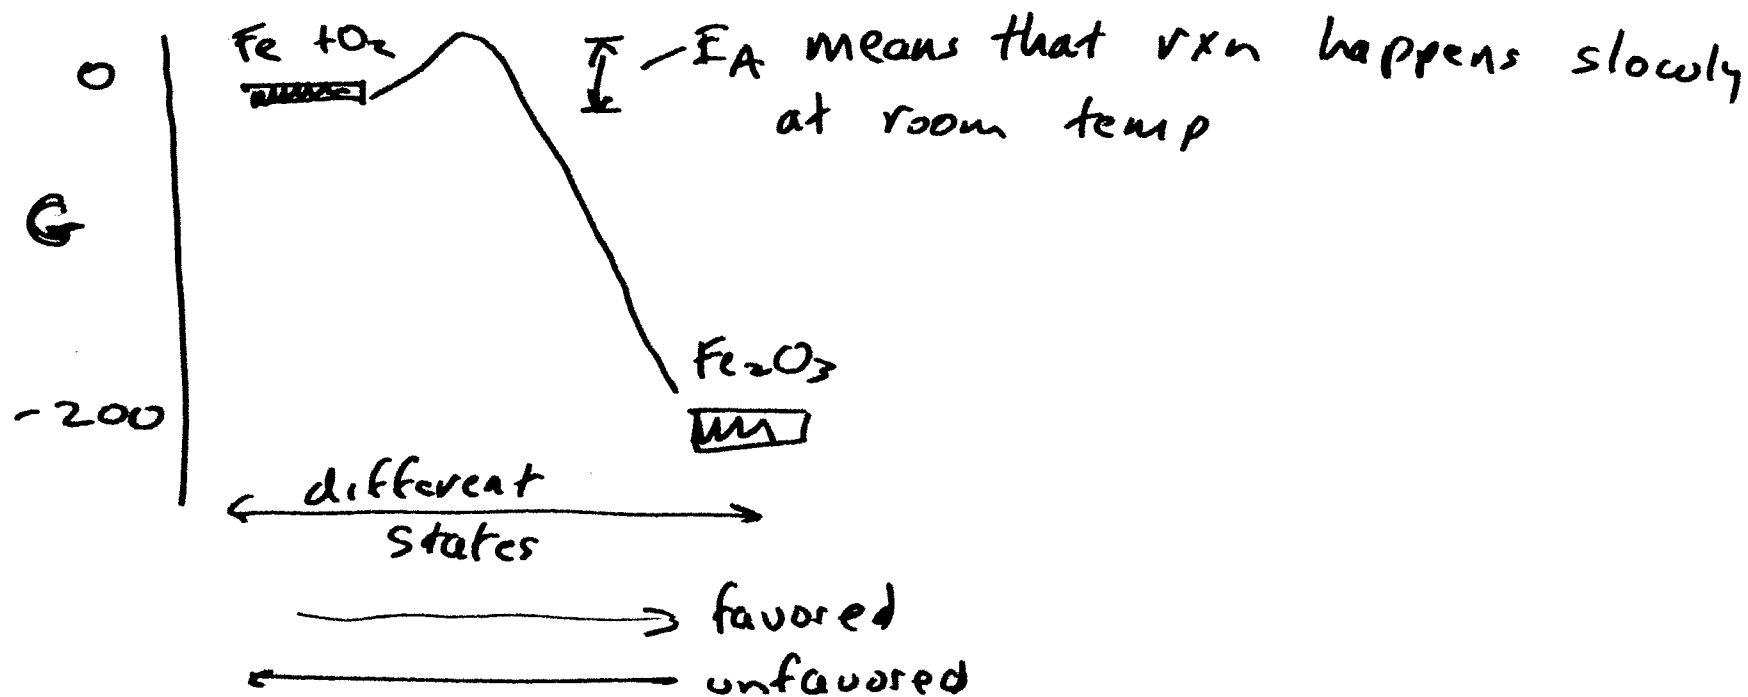 Fe + O₂
EA means that rxn happens slowly
at room temp
0
G
-200
Fe₂O₃
different
states
favored
unfavored